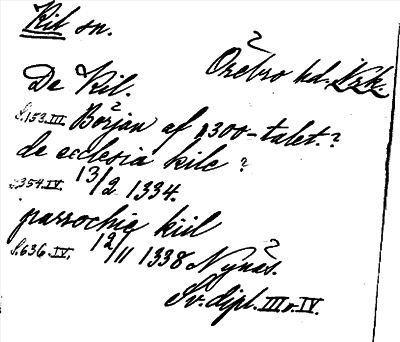 Kil sn.
Örebro hd. Nrk.
De Kil.
S.153.III. Början af 1300-talet.?
de ecclesia kile ?
S.354.IV. 13/2 1334.
parrochie kiil
S.636.IV. 12/11 1338 Nynäs.
Sv. dipl. III o. IV.